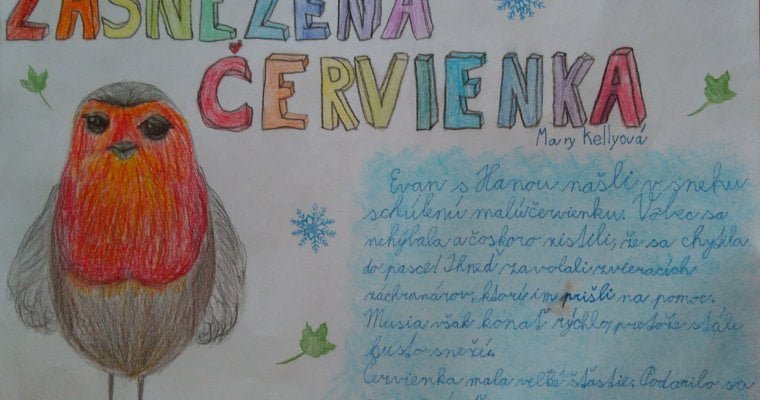 ZASNEŽENÁ
ČERVIENKA
Mary Kellyová
Evan s Hanou našli v snehu
schúlenú malú červienku. Vôbec sa
nehýbala a čoskoro zistili, že sa chytila
do pasce! Ihneď zavolali zvieracích
záchranárov, ktorí im prišli na pomoc.
Musia však konať rýchlo, pretože stále
husto sneží.
Červienka mala veľké šťastie. Podarilo sa